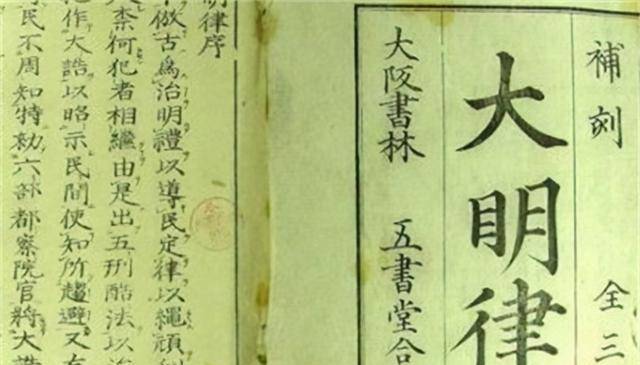 補刻 全三
大明律
大阪書林 五書堂合
明律序
倣古爲治明禮以導民定律以繩頑
柰何犯者相繼由是出五刑酷法以治
作大誥以昭示民間使知所趨避又有
民不周知特勑六部都察院官將大誥